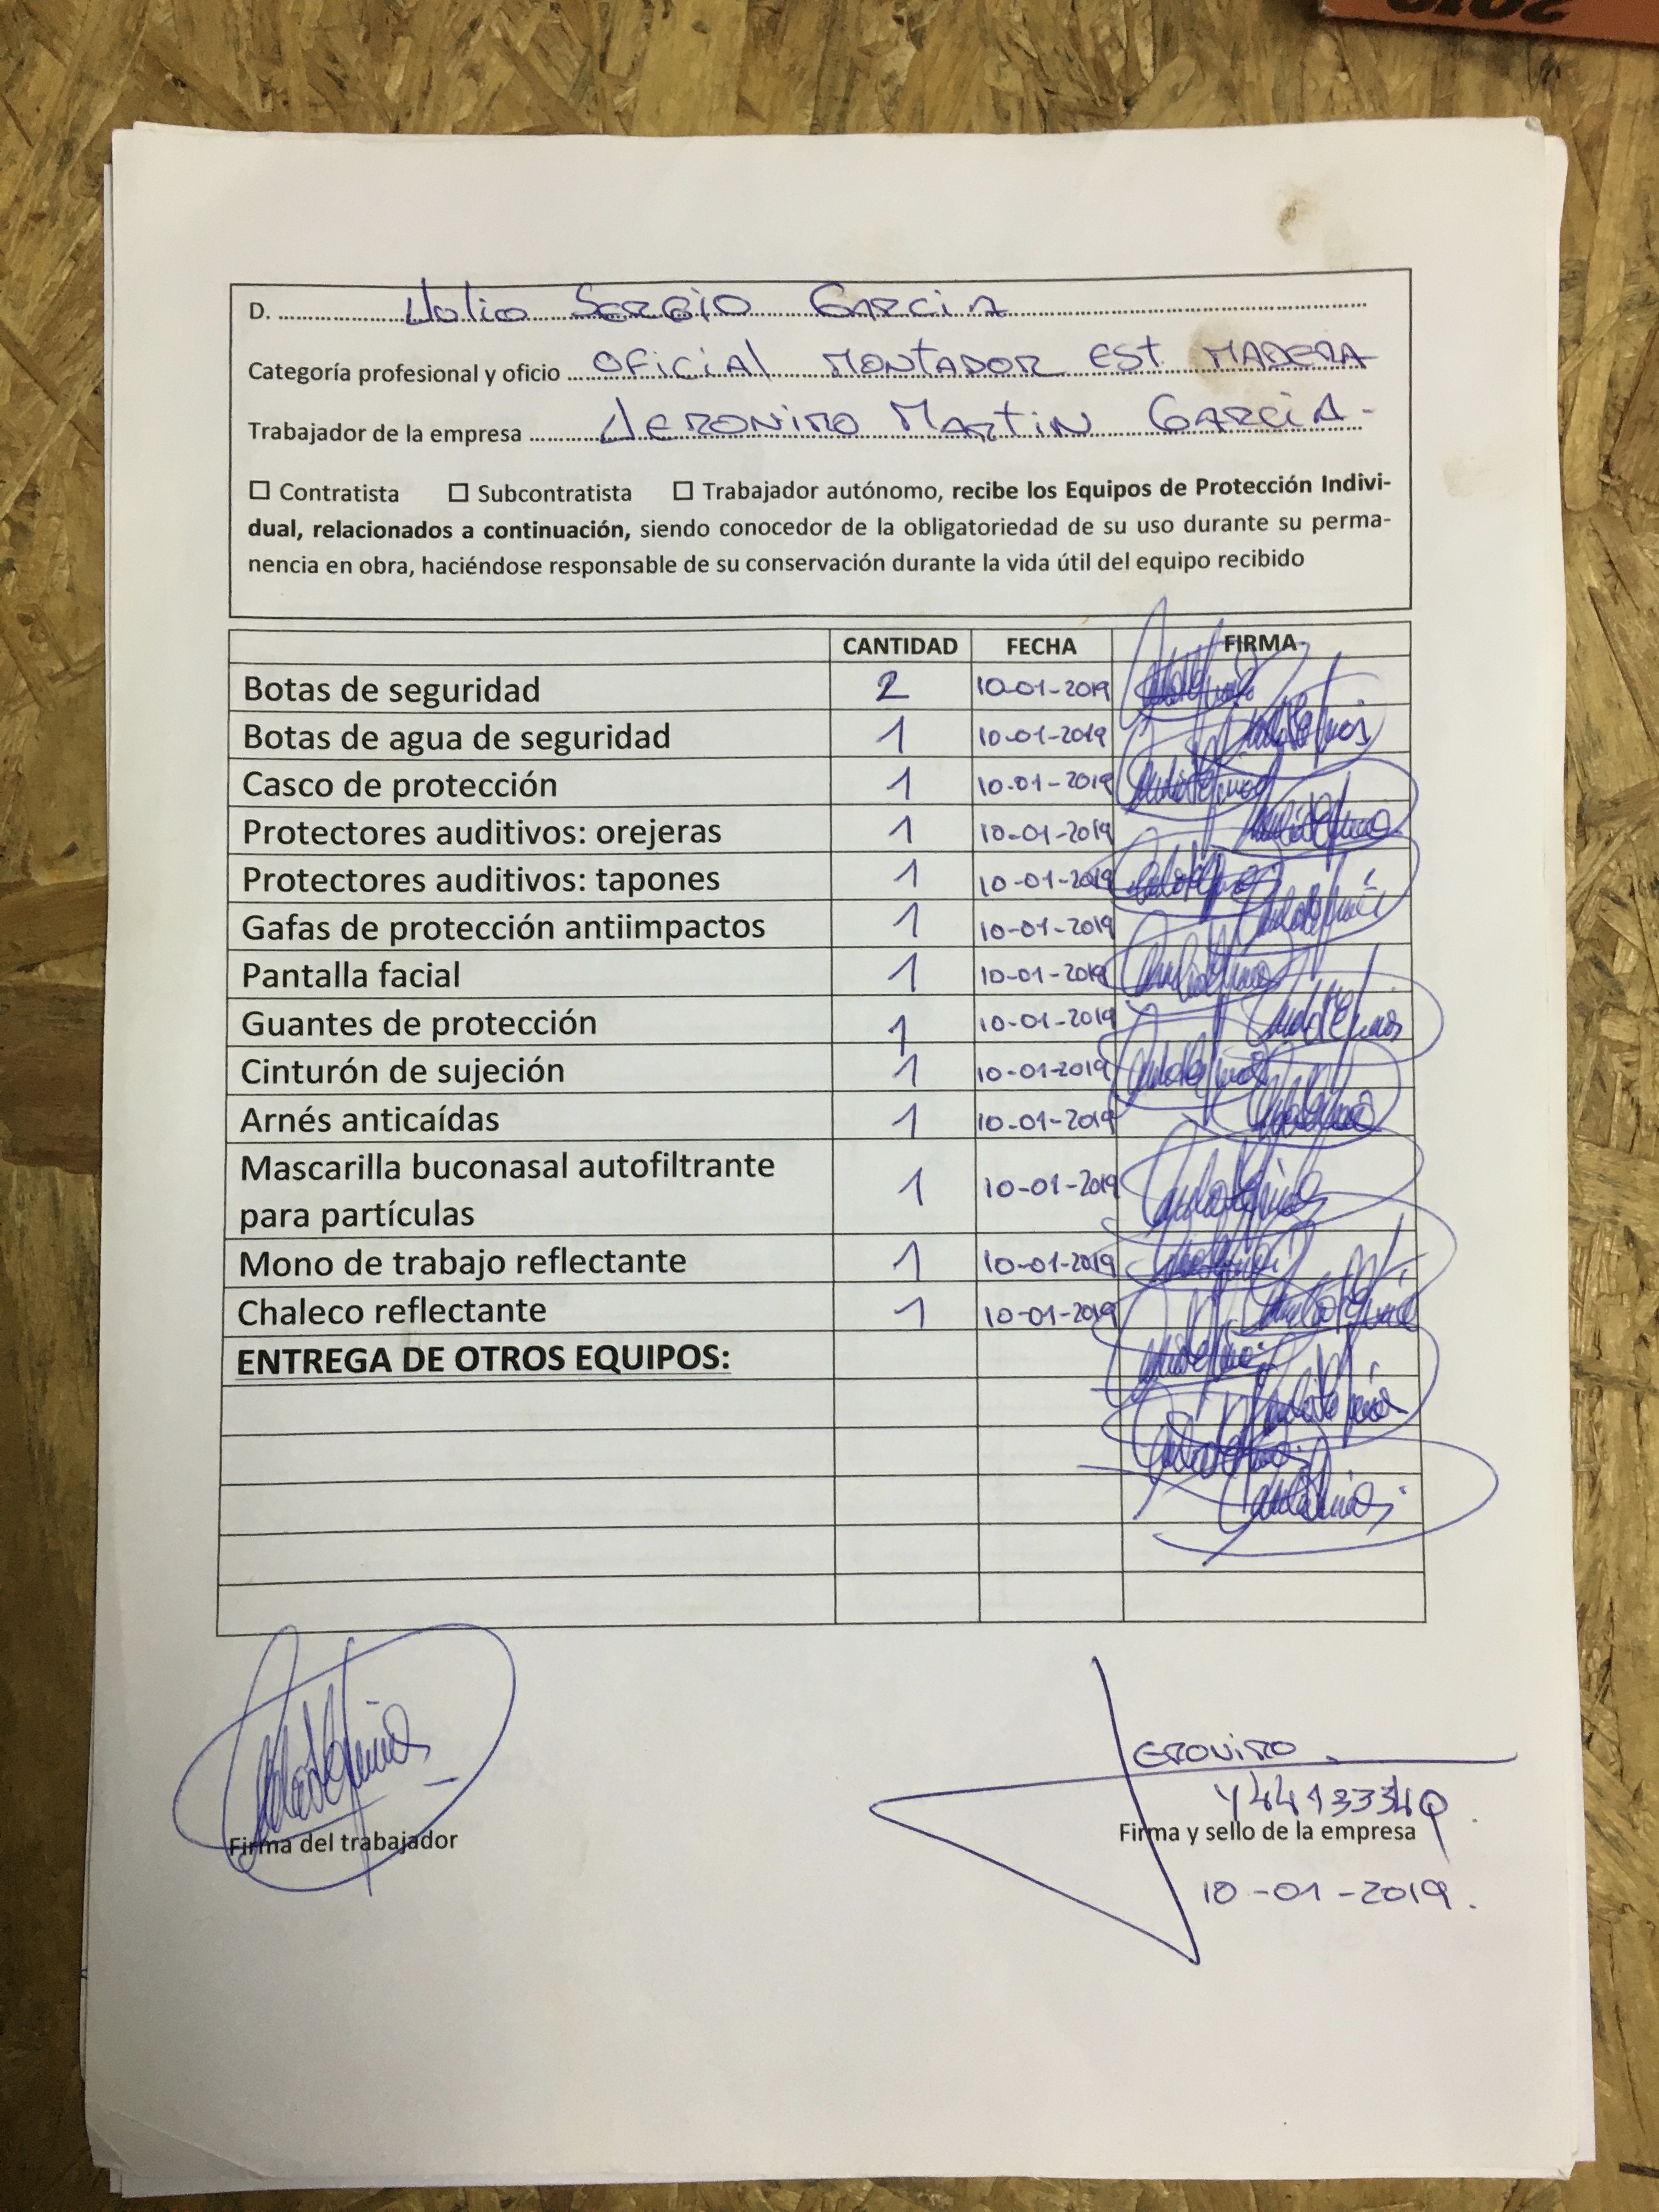 D. Julio Sergio Garcia
Categoría profesional y oficio OFICIAL MONTADOR EST. MADERA
Trabajador de la empresa JERONIMO MARTIN GARCIA-
☐ Contratista ☐ Subcontratista ☐ Trabajador autónomo, recibe los Equipos de Protección Indivi-
dual, relacionados a continuación, siendo conocedor de la obligatoriedad de su uso durante su perma-
nencia en obra, haciéndose responsable de su conservación durante la vida útil del equipo recibido
CANTIDAD FECHA FIRMA
Botas de seguridad 2 10-01-2019
Botas de agua de seguridad 1 10-01-2019
Casco de protección 1 10-01-2019
Protectores auditivos: orejeras 1 10-01-2019
Protectores auditivos: tapones 1 10-01-2019
Gafas de protección antiimpactos 1 10-01-2019
Pantalla facial 1 10-01-2019
Guantes de protección 1 10-01-2019
Cinturón de sujeción 1 10-01-2019
Arnés anticaídas 1 10-01-2019
Mascarilla buconasal autofiltrante
para partículas 1 10-01-2019
Mono de trabajo reflectante 1 10-01-2019
Chaleco reflectante 1 10-01-2019
ENTREGA DE OTROS EQUIPOS:
JERONIMO
Firma del trabajador
Firma y sello de la empresa
10-01-2019.